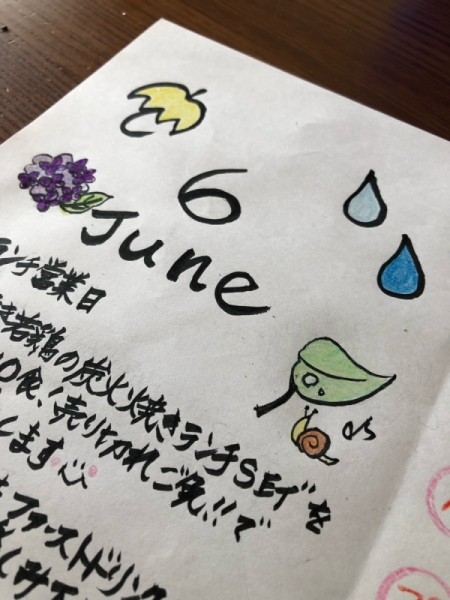 6
June
ランチ営業日
き若鶏の炭火焼きランチSETを
0食、売り切れご免!!で
します
ファーストドリンク